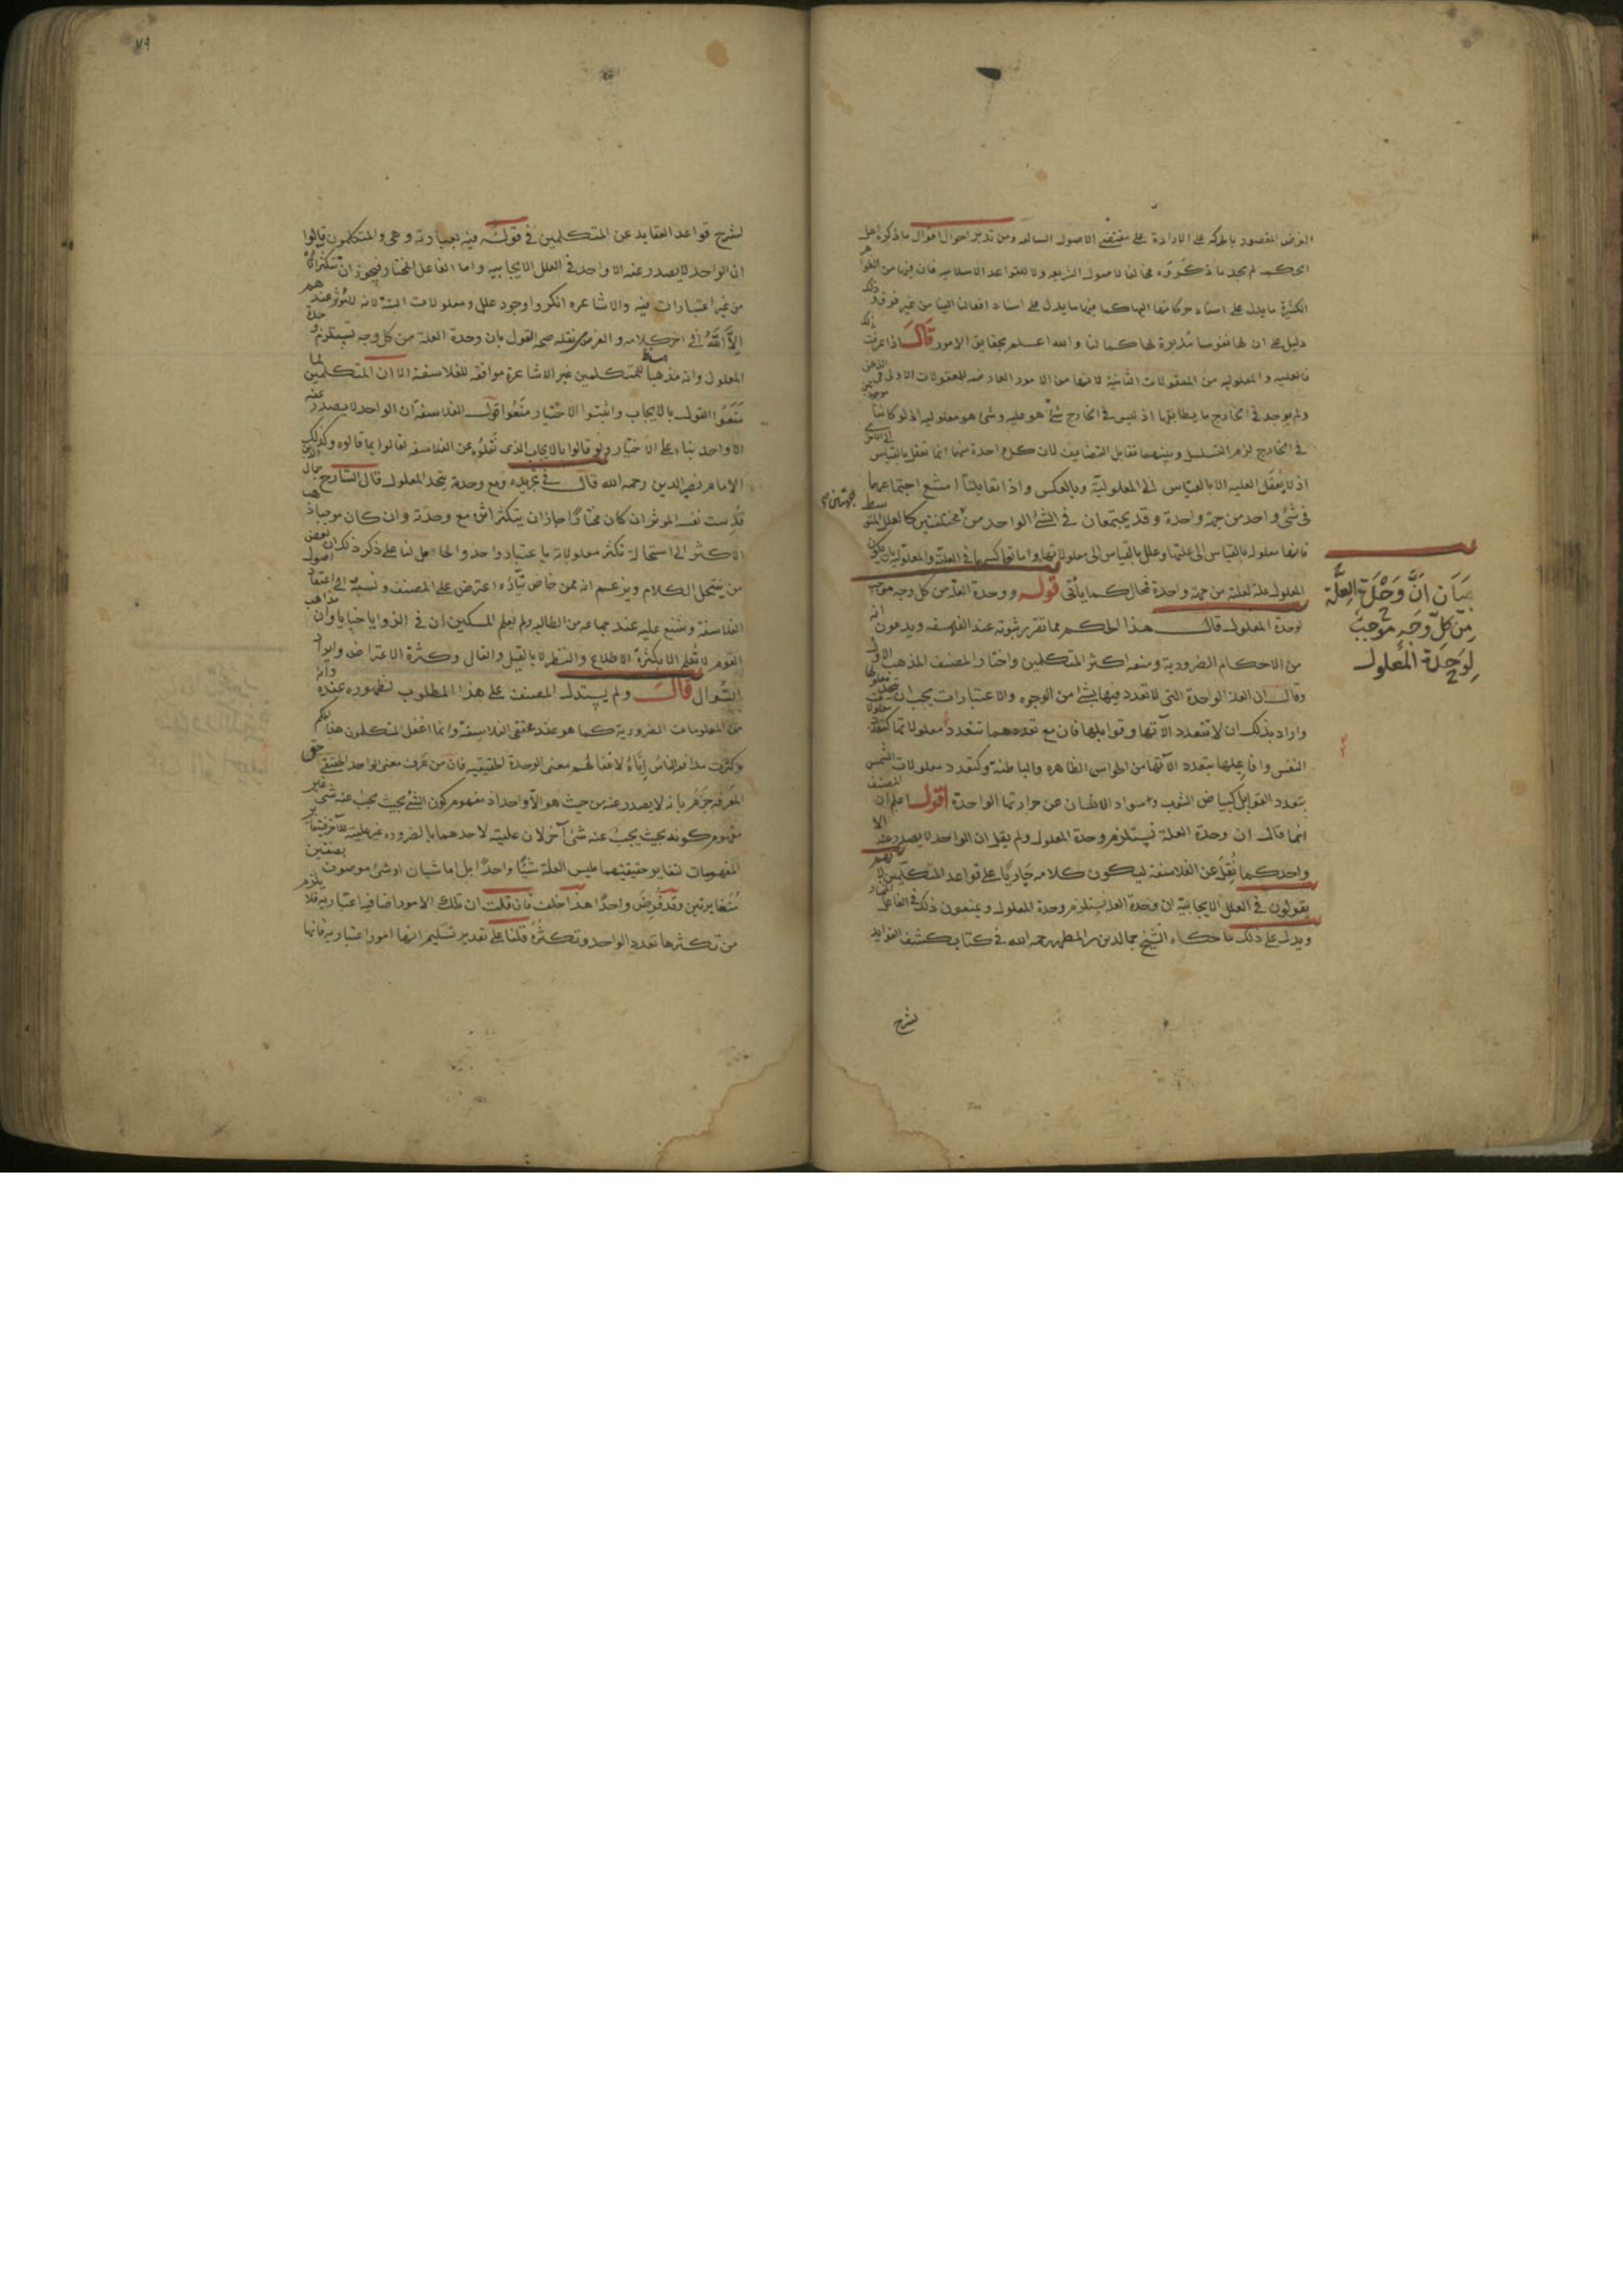 الغرض المقصود بالحركه على الارادة على مقتضى الاصول السالفه ومن تدبر احوال اقوال ما ذكره اهل
الحكمه لم يجد ما ذكروه مخالفا لاصول الشريعه ولا للقواعد الاسلاميه فان فيها من الظواهر
الكثيرة ما يدل على اسناد حركاتها اليها كما فيها ما يدل على اسناد افعالنا الينا من غير فرق وذلك
دليل على ان لها نفوسا مدبرة لها كما لنا والله اعلم بحقايق الامور قال اذا عرفت ذلك
فالعليه والمعلوليه من المعقولات الثانية لانها من الامور العارضه للمعقولات الاولى في الذهن
ولم يوجد في الخارج ما يطابقها اذ ليس في الخارج شئ هو عليه وشئ هو معلوليه اذ لو كانتا موجودتين
في الخارج لزم التسلسل وبينهما تقابل التضايف لان كل واحدة منهما انما تعقل بالقياس الى الاخرى
اذ لا يعقل العليه الا بالقياس الى المعلوليّة وبالعكس واذا تقابلتا امتنع اجتماعهما
في شئ واحد من جهة واحدة وقد يجتمعان في الشئ الواحد من جهتين مختلفتين كالعلل المتوسط
فانها معلوله بالقياس الى علتها وعلل بالقياس الى معلولاتها واما تعاكسهما في العليّة والمعلوليه بان يكون
المعلول علة لعلته من جهة واحدة فمحال كما يأتى قوله ووحدة العلة من كل وجه موجب
لوحدة المعلول قال هذا الحكم مما تقرر ثبوته عند الفلاسفه ويدعون انه
من الاحكام الضرورية ومنعه اكثر المتكلمين واختار المصنف المذهب الاول
وقال ان العلة الواحدة التى لا تعدد فيها بشئ من الوجوه والاعتبارات يجب ان يتحد معلولها
واراد بذلك ان لا تتعدد آلاتها وقوابلها فان مع تعددهما تتعدد معلولاتها كتعدد معلولات
النفس وافاعيلها بتعدد آلاتها من الحواس الظاهره والباطنة وكتعدد معلولات الشمس
بتعدد القوابل كبياض الثوب وسواد الانسان عن حرارتها الواحدة اقول اعلم ان المصنف
انما قال ان وحدة العلة تستلزم وحدة المعلول ولم يقل ان الواحد لا يصدر عنه الا
واحد كما نقل عن الفلاسفة ليكون كلامه جاريا على قواعد المتكلمين لانهم
يقولون في العلل الايجابيّة ان وحدة العلة يستلزم وحدة المعلول ويمنعون ذلك في الفاعل المختار
ويدل على ذلك ما حكاه الشيخ جمالدين بن المطهر رحمه الله في كتاب كشف الفوايد
لشرح
جهتين
بيان انّ وحدة العلّة
من كل وجه موجب
لوحدة المعلول
٧٩
لشرح قواعد العقايد عن المتكلمين في قوله فيه بعبارته وهى والمتكلمون قالوا
ان الواحد لا يصدر عنه الا واحد في العلل الايجابيه واما الفاعل المختار فيجوز ان تتكثر آثاره
من غير اعتبارات فيه والاشاعره انكروا وجود علل ومعلولات البتة لانه لا مؤثر عندهم
الا الله الى اخر كلامه والغرض من نقله صحه القول بان وحدة العلة من كل وجه تستلزم وحدة
المعلول وانه مذهب المتكلمين غير الاشاعرة موافقه للفلاسفة الا ان المتكلمين لما
منعوا القول بالايجاب واثبتوا الاختيار منعوا قول الفلاسفة ان الواحد لا يصدر عنه
الا واحد بناء على الاختيار ولو قالوا بالايجاب الذى نقلوه عن الفلاسفه لقالوا بما قالوه وكذلك
الامام نصير الدين رحمه الله قال في تجريده ومع وحدته يتحد المعلول قال الشارح جمال الدين
قدست نفسه المؤثر ان كان مختارا جاز ان يتكثر اثره مع وحدته وان كان موجبا ذهب
الاكثر الى استحالة تكثر معلولاته باعتبار واحد والحامل لنا على ذكر ذلك ان بعض
من ينتحل الكلام ويزعم انه ممن خاض تيّاره اعترض على المصنف ونسبه الى اعتقاد اصول
الفلاسفة وشنع عليه عند جماعه من الطالبه ولم يعلم المسكين ان في الزوايا خبايا وان مذاهب
القوم لا تعلم الا بكثرة الاطلاع والنظر لا بالقيل والقال وكثرة الاعتراض وايراد
السُّوال قال ولم يستدل المصنف على هذا المطلوب لظهوره عنده وانه
من المعلومات الضرورية كما هو عند محققى الفلاسفة وانما اغفل المتكلمون هذا الحكم
وكثرت مدافعه الناس إيّاه لاغفالهم معنى الوحدة الحقيقيه فان من عرف معنى الواحد الحقيقى حق
المعرفه جزم بانه لا يصدر عنه من حيث هو الاّ واحد اذ مفهوم كون الشئ بحيث يجب عنه شئ غير
مفهوم كونه بحيث يجب عنه شئ آخر لان عليته لاحدهما بالضروره غير عليته للآخر فتغاير
المفهومات لتغاير حقيقتهما فليس العلة شيئًا واحدًا بل اما شيئان او شئ موصوف بصفتين
متغايرتين وقد فرض واحدًا هذا خلف فان قلت ان تلك الامور اضافيه اعتباريه فلا يلزم
من تكثرها تعدد الواحد وتكثره قلنا على تقدير تسليم انها امور اعتباريه فانها